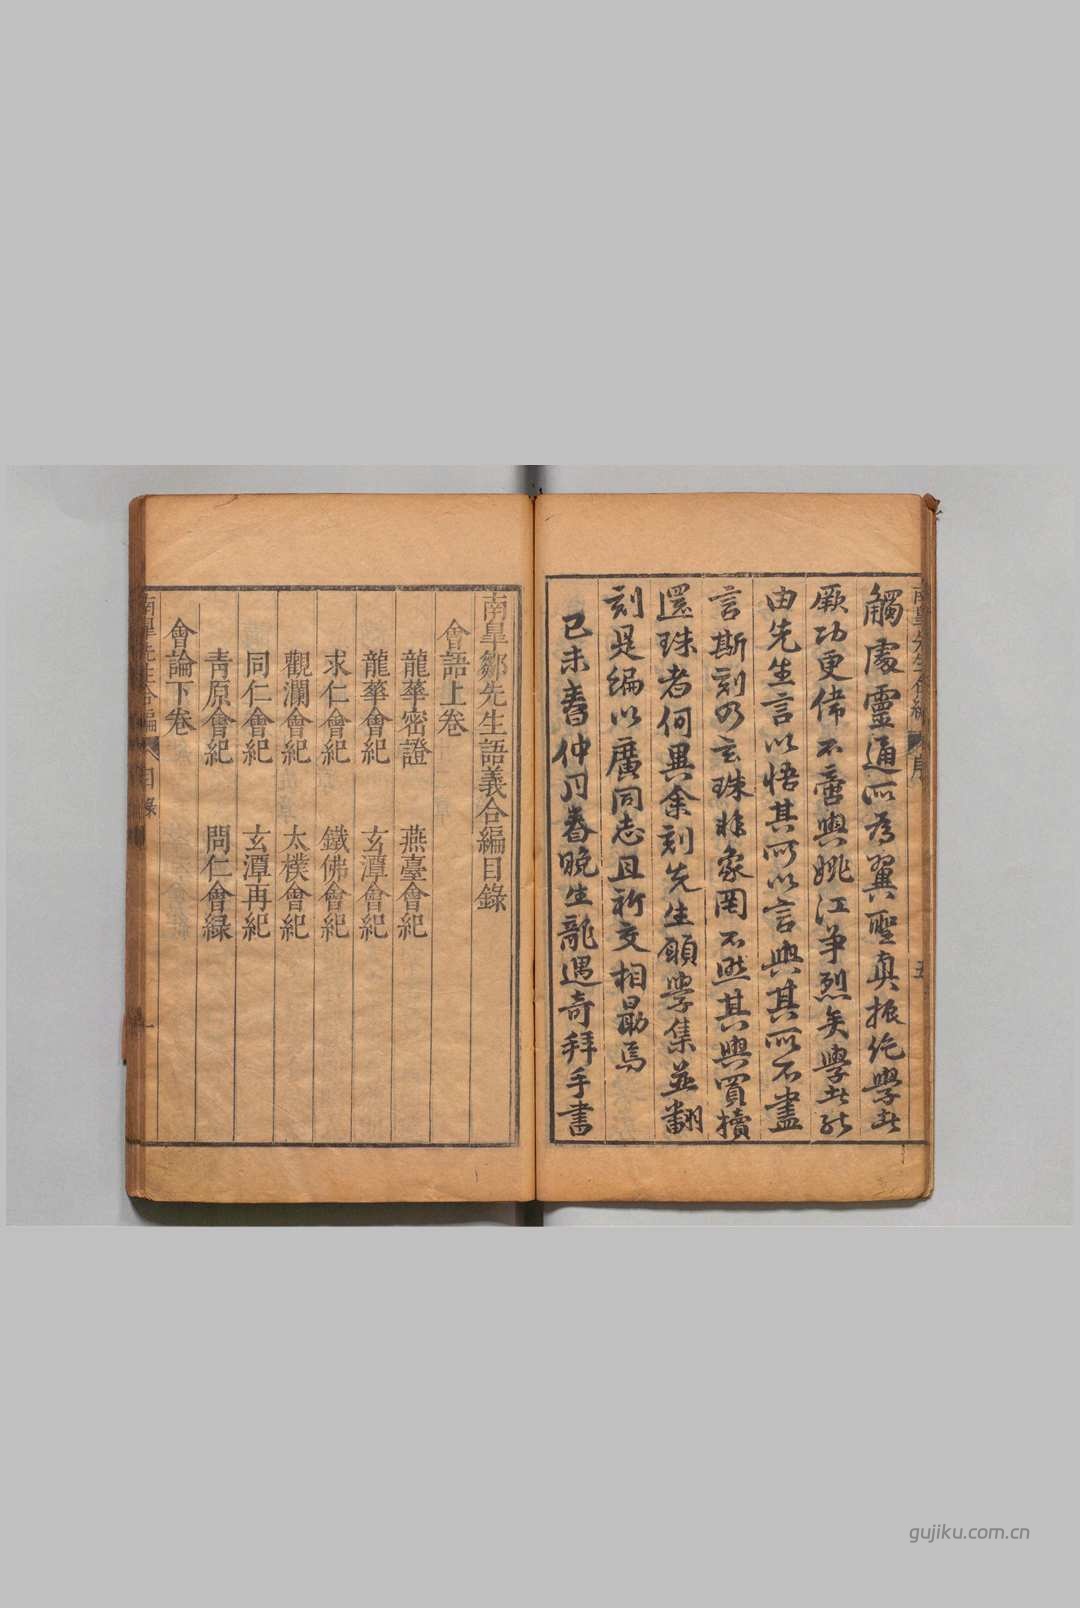 觸處靈通所為翼聖真振絕學者
厥功更偉不啻與姚江爭烈矣學者能
由先生言以悟其所以言與其所不盡
言斯刻乃玄珠非象罔不然其與買櫝
還珠者何異余刻先生願學集並翻
刻是編以廣同志且祈交相勗焉
己未春仲月眷晚生龍遇奇拜手書
南臯鄒先生語義合編目錄
會語上卷
龍華密證 燕臺會紀
龍華會紀 玄潭會紀
求仁會紀 鐵佛會紀
觀瀾會紀 太樸會紀
同仁會紀 玄潭再紀
青原會紀 問仁會録
會論下卷
南臯先生合編 目錄 一
gujiku.com.cn